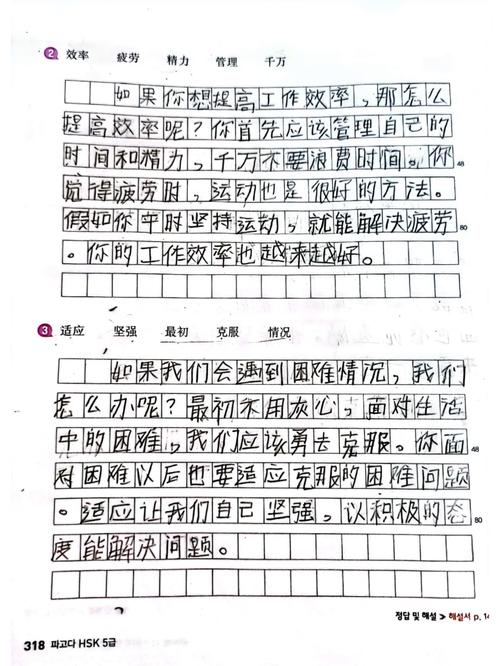 2 效率 疲劳 精力 管理 千万
如果你想提高工作效率,那怎么
提高效率呢?你首先应该管理自己的
时间和精力,千万不要浪费时间。你
48
觉得疲劳时,运动也是很好的方法。
假如你平时坚持运动,就能解决疲劳
80
。你的工作效率也越来越好。
3 适应 坚强 最初 克服 情况
如果我们会遇到困难情况,我们
怎么办呢?最初不用灰心,面对生活
中的困难,我们应该勇去克服。你面
48
对困难以后也要适应克服的困难问题
。适应让我们自己坚强,以积极的态
80
度能解决问题。
정답 및 해설 > 해설서 p.14
318 파고다 HSK 5급